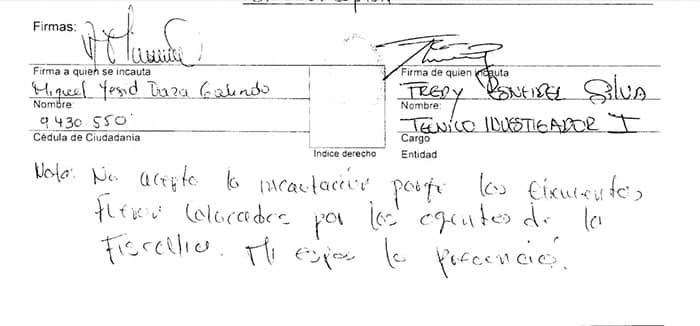 Firmas:
Firma a quien se incauta
Miguel Yesid Daza Galindo
Nombre:
9 430 550
Cédula de Ciudadanía
Indice derecho
Firma de quien incauta
FREDY BONFIDEL SILVA
Nombre:
TECNICO INVESTIGADOR I
Cargo
Entidad
Nota: No acepto la incautación porque los elementos
fueron colocados por los agentes de la
Fiscalia. Mi esposa lo presenció.